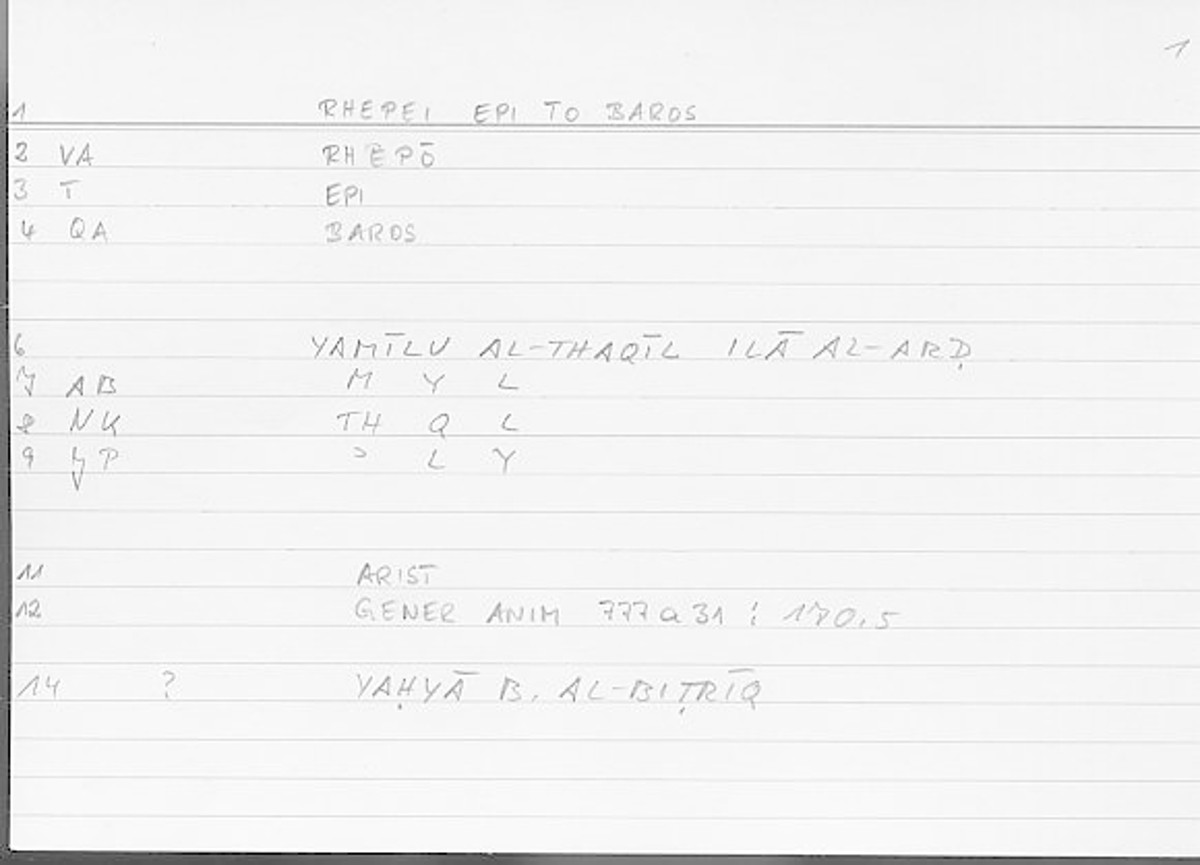 1
1 RHEPEI EPI TO BAROS
2 VA RHEPŌ
3 T EPI
4 QA BAROS
6 YAMĪLU AL-THAQĪL ILĀ AL-ARḌ
7 AB M Y L
8 NK TH Q L
9 P ʾ L Y
11 ARIST
12 GENER ANIM 777a31 : 170.5
14 ? YAḤYĀ B. AL-BIṬRĪQ